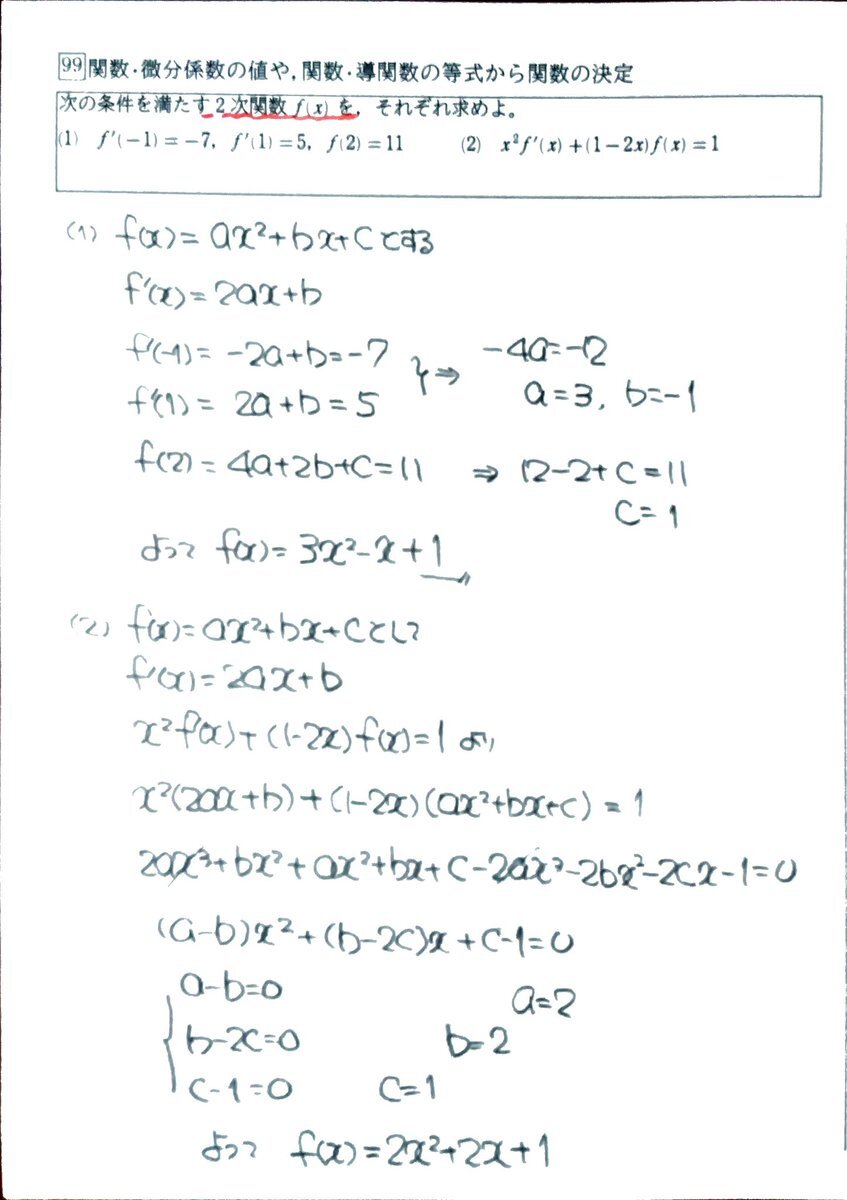 99 関数・微分係数の値や,関数・導関数の等式から関数の決定
次の条件を満たす2次関数 f(x) を,それぞれ求めよ。
(1) f'(-1)=-7, f'(1)=5, f(2)=11 (2) x²f'(x)+(1-2x)f(x)=1
(1) f(x)=ax²+bx+cとする
f'(x)=2ax+b
f'(-1)=-2a+b=-7
f'(1)=2a+b=5
} ⇒ -4a=-12
a=3, b=-1
f(2)=4a+2b+c=11 ⇒ 12-2+c=11
c=1
よって f(x)=3x²-x+1
(2) f(x)=ax²+bx+cとして
f'(x)=2ax+b
x²f'(x)+(1-2x)f(x)=1 より
x²(2ax+b)+(1-2x)(ax²+bx+c)=1
2ax³+bx²+ax²+bx+c-2ax³-2bx²-2cx-1=0
(a-b)x²+(b-2c)x+c-1=0
a-b=0 a=2
b-2c=0 b=2
c-1=0 c=1
よって f(x)=2x²+2x+1